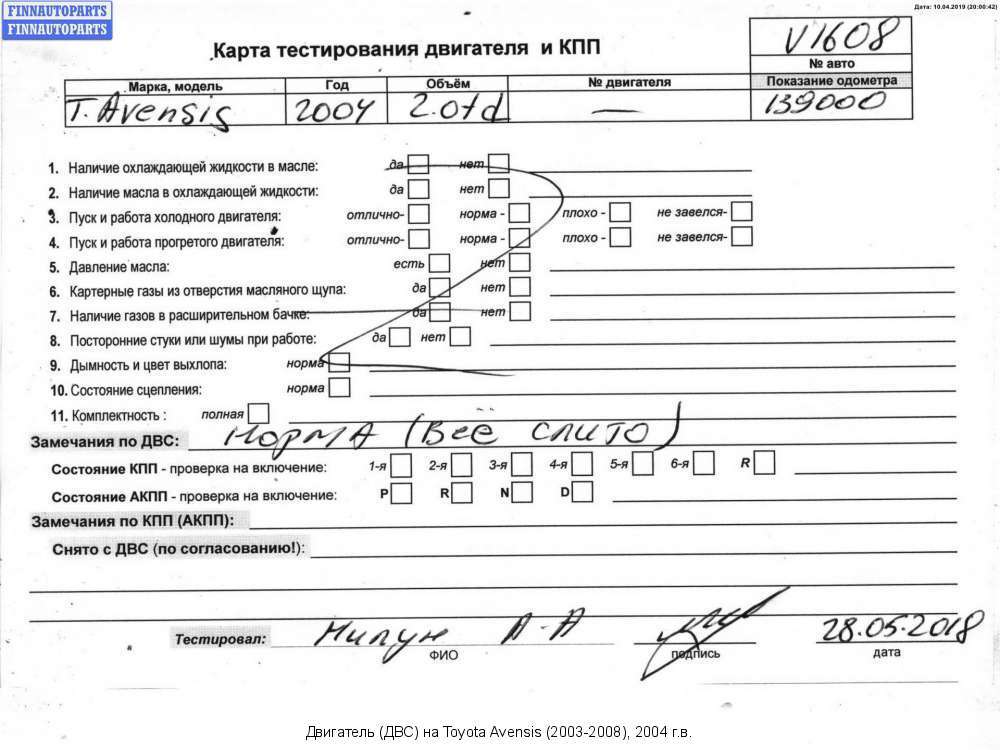 FINNAUTOPARTS
FINNAUTOPARTS
Дата: 10.04.2019 (20:00:42)
Карта тестирования двигателя и КПП
V1608
№ авто
Марка, модель Год Объём № двигателя Показание одометра
T. Avensis 2004 2.0td — 139000
1. Наличие охлаждающей жидкости в масле: да нет
2. Наличие масла в охлаждающей жидкости: да нет
3. Пуск и работа холодного двигателя: отлично- норма - плохо - не завелся-
4. Пуск и работа прогретого двигателя: отлично- норма - плохо - не завелся-
5. Давление масла: есть нет
6. Картерные газы из отверстия масляного щупа: да нет
7. Наличие газов в расширительном бачке: да нет
8. Посторонние стуки или шумы при работе: да нет
9. Дымность и цвет выхлопа: норма
10. Состояние сцепления: норма
11. Комплектность : полная
Замечания по ДВС: Норма (Всё слито)
Состояние КПП - проверка на включение: 1-я 2-я 3-я 4-я 5-я 6-я R
Состояние АКПП - проверка на включение: P R N D
Замечания по КПП (АКПП):
Снято с ДВС (по согласованию!):
Тестировал: А-А 28.05.2018
ФИО подпись дата
Двигатель (ДВС) на Toyota Avensis (2003-2008), 2004 г.в.